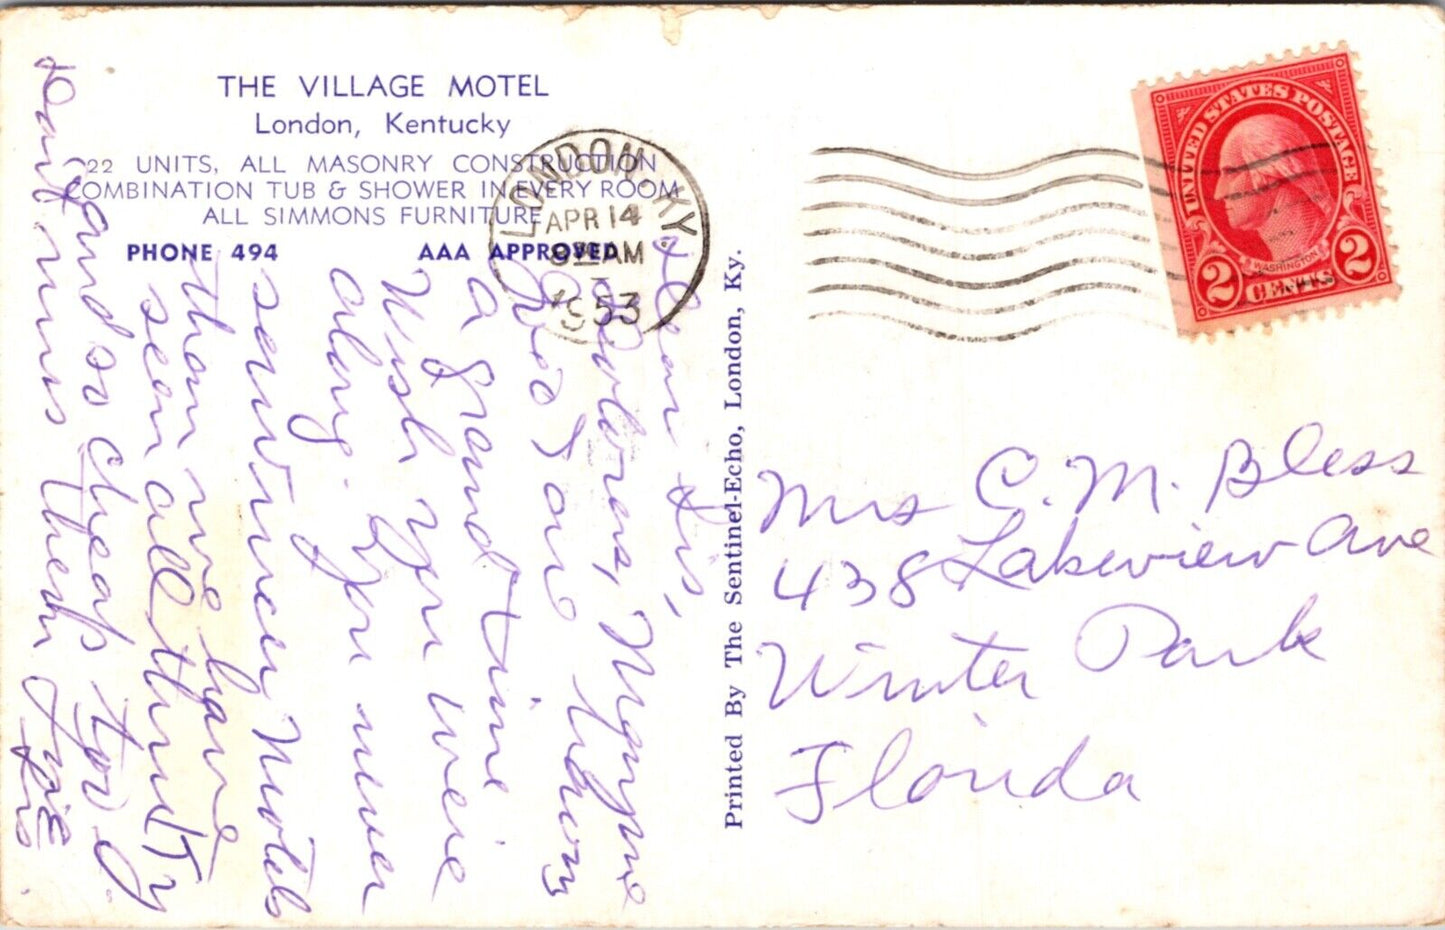 THE VILLAGE MOTEL
London, Kentucky
22 UNITS, ALL MASONRY CONSTRUCTION
COMBINATION TUB & SHOWER IN EVERY ROOM
ALL SIMMONS FURNITURE
PHONE 494 AAA APPROVED
LONDON KY.
APR 14
8 AM
1953
UNITED STATES POSTAGE
WASHINGTON
2 CENTS 2
Dear Sis,
Dolores, Mayme
and I are having
a grand time
Wish you were
along. You never
saw nicer Motels
than we have
seen all thru Ky
and so cheap too
Dait runs them
Sis.
Printed By The Sentinel-Echo, London, Ky.
Mrs C. M. Bless
438 Lakeview Ave
Winter Park
Florida